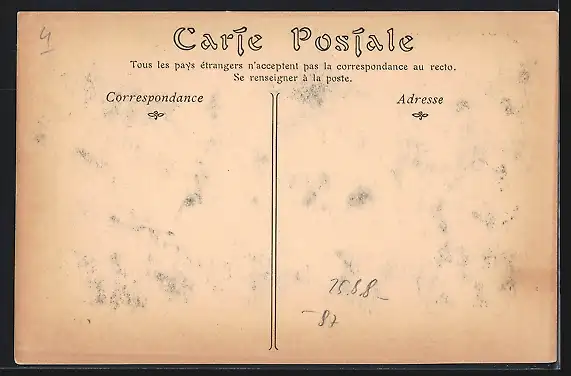 4
Carte Postale
Tous les pays étrangers n'acceptent pas la correspondance au recto.
Se renseigner à la poste.
Correspondance
Adresse
- 87